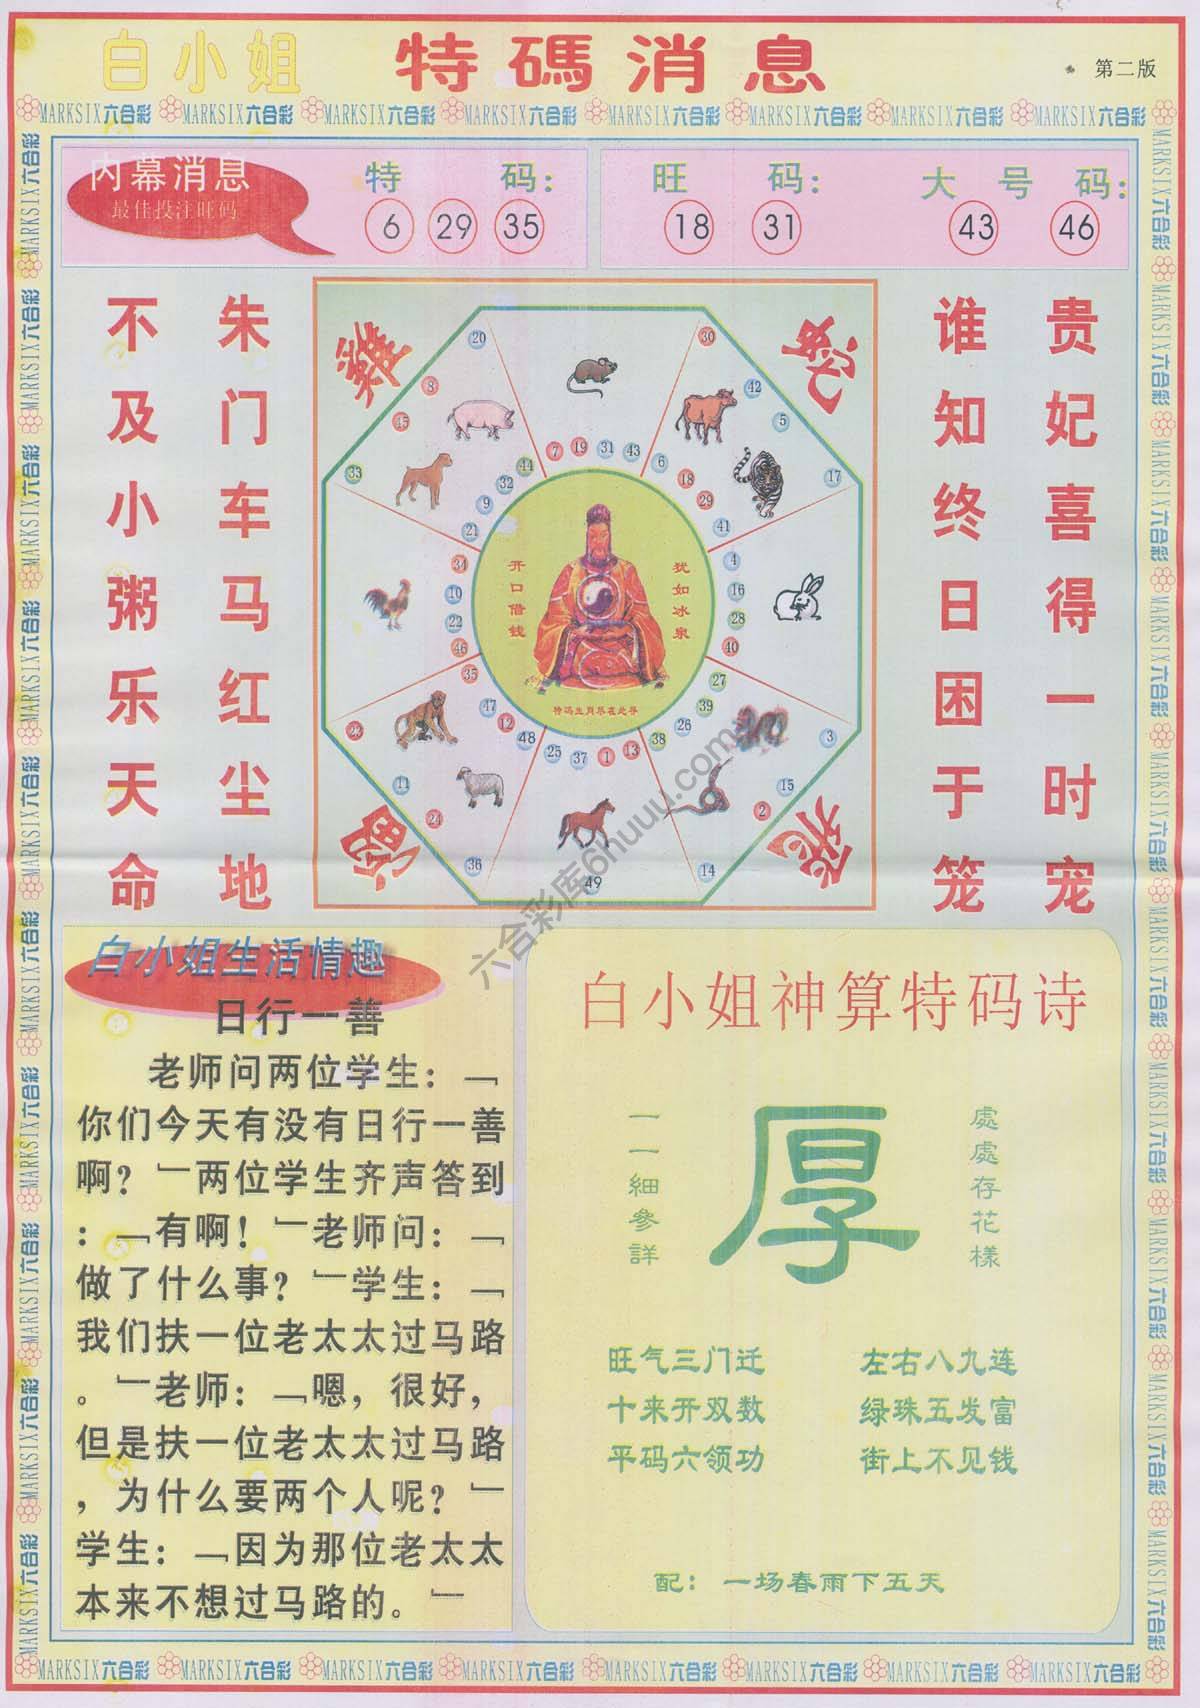 白小姐 特碼消息
第二版
MARKSIX六合彩 MARKSIX六合彩 MARKSIX六合彩 MARKSIX六合彩 MARKSIX六合彩 MARKSIX六合彩 MARKSIX六合彩 MARKSIX六合彩
内幕消息
最佳投注旺码
特码：
6 29 35
旺码：
18 31
大号码：
43 46
贵妃喜得一时宠
谁知终日困于笼
朱门车马红尘地
不及小粥乐天命
雞
蛇
龍
20 8 45 33
30 42 5 17
7 19 31 43
6 18 29 41
4 16 28 40
27 39 26 38
3 15 2 14
1 13 25 37 49
12 48 47 35
23 11 24 36
34 10 22 46
44 32 9 21
开口借钱
犹如冰泉
特码生肖尽在此寻
六合彩库6huuu.com
白小姐生活情趣
日行一善
老师问两位学生：﹁
你们今天有没有日行一善
啊？﹂两位学生齐声答到
：﹁有啊！﹂老师问：﹁
做了什么事？﹂学生：﹁
我们扶一位老太太过马路
。﹂老师：﹁嗯，很好，
但是扶一位老太太过马路
，为什么要两个人呢？﹂
学生：﹁因为那位老太太
本来不想过马路的。﹂
白小姐神算特码诗
處處存花樣
厚
一一細參詳
旺气三门迁 左右八九连
十来开双数 绿珠五发富
平码六领功 街上不见钱
配：一场春雨下五天
MARKSIX六合彩 MARKSIX六合彩 MARKSIX六合彩 MARKSIX六合彩 MARKSIX六合彩 MARKSIX六合彩 MARKSIX六合彩 MARKSIX六合彩